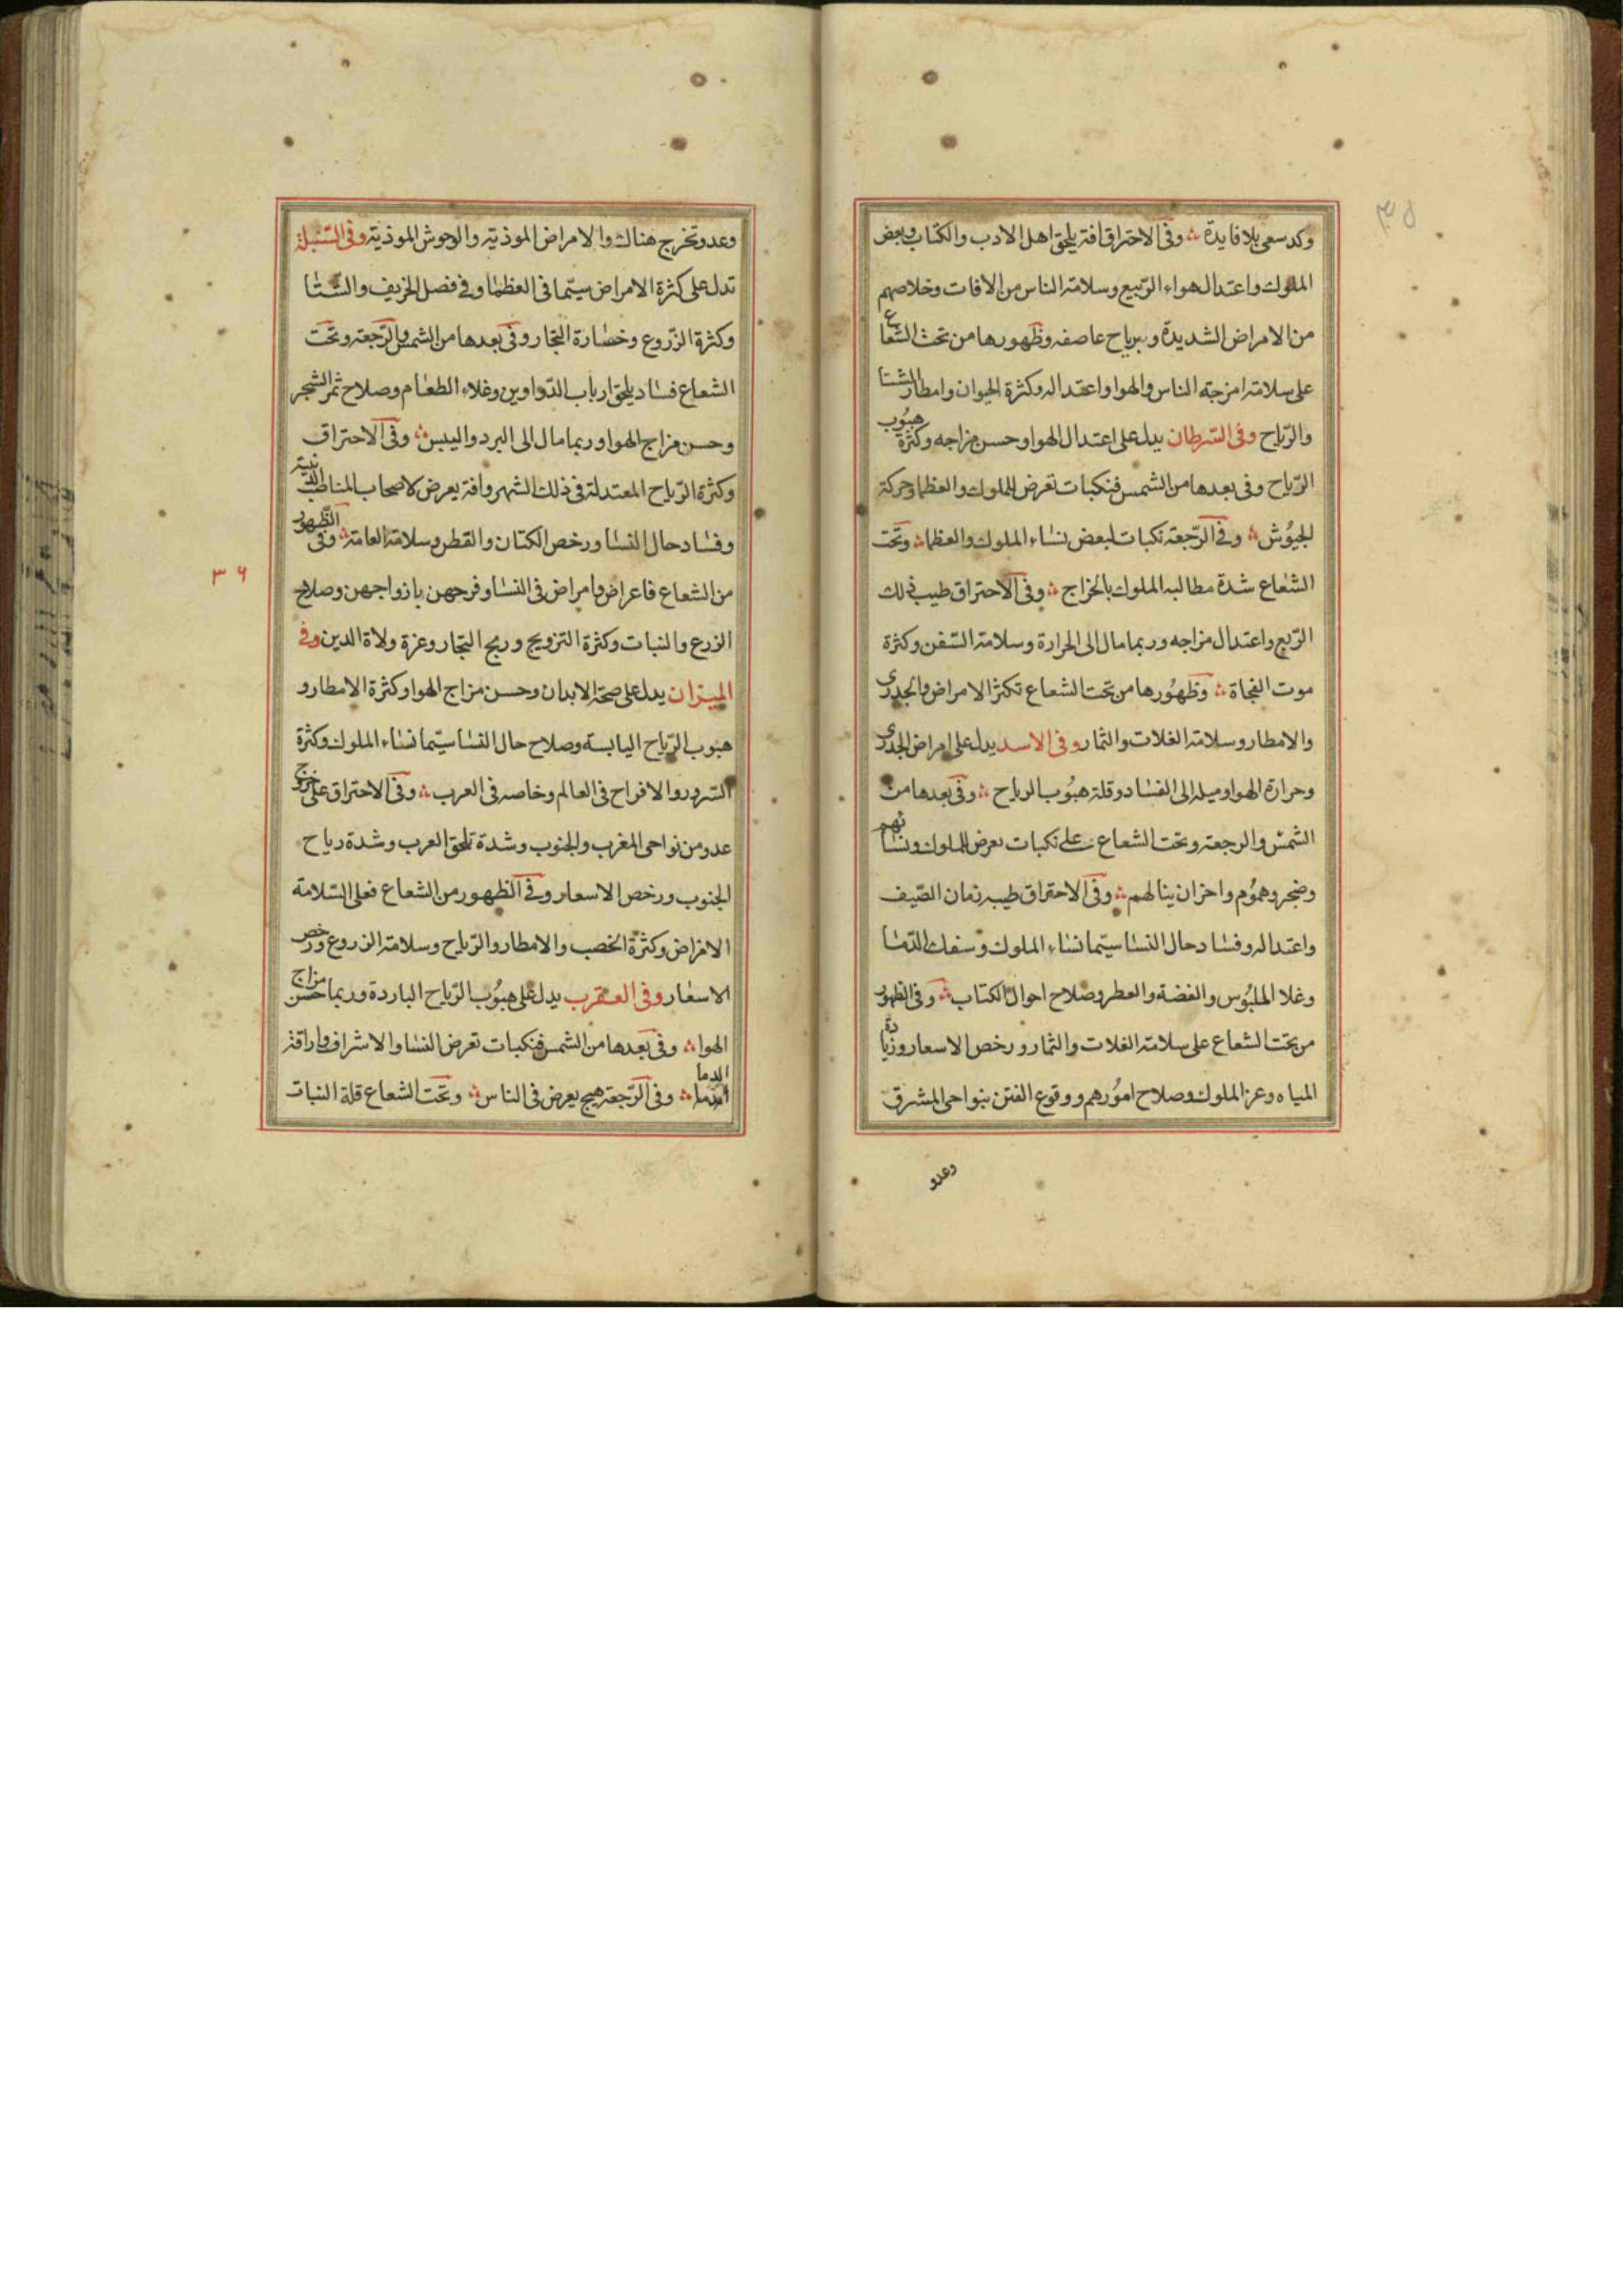 وكد سعى بلا فايدة ؞ وفى الاحتراق افة يلحق اهل الادب والكتاب وبعض
الملوك واعتدال هواء الرّبيع وسلامة الناس من الافات وخلاصهم
من الامراض الشديدة وبرياح عاصفه وظهورها من تحت الشعاع
على سلامة امزجة الناس والهوا واعتداله وكثرة الحيوان وامطار الشتا
والرّياح وفى السّرطان يدل على اعتدال الهوا وحسن مزاجه وكثرة هبُوب
الرّياح وفى بعدها من الشمس فنكبات تعرض للملوك والعظما وحركة
الجيُوش ؞ وفى الرّجعة نكبات لبعض نساء الملوك والعظما ؞ وتحت
الشعاع شدة مطالبه الملوك بالخراج ؞ وفى الاحتراق طيب ذلك
الرّبع واعتدال مزاجه وربما مال الى الحرارة وسلامة السّفن وكثرة
موت الفجاة ؞ وظهُورها من تحت الشعاع تكثر الامراض والجدرى
والامطار وسلامة الغلات والثمار وفى الاسد يدل على امراض الجدرى
وحرارة الهوا وميله الى الفساد وقلة هبُوب الرياح ؞ وفى بعدها من
الشمس والرجعة وتحت الشعاع على نكبات تعرض للملوك ونسائهم
وضجر وهمُوم واحزان ينالهم ؞ وفى الاحتراق طيبه زمان الصّيف
واعتداله وفساد حال النسا سيّما نساء الملوك وسفك الدّما
وغلا الملبُوس والفضة والعطر وصلاح احوال الكتاب ؞ وفى الظهور
من تحت الشعاع على سلامة الغلات والثمار ورخص الاسعار وزيادة
المياه وعز الملوك وصلاح امُورهم ووقوع الفتن بنواحى المشرق
وعدو
وعدو تخرج هناك والامراض الموذية والوحوش الموذية وفى السّنبلة
تدل على كثرة الامراض سيّما فى العظما وفى فصل الخريف والشّتا
وكثرة الزّروع وخسارة التجار وفى بعدها من الشمس والرّجعة وتحت
الشعاع فساد يلحق ارباب الدّواوين وغلاء الطعام وصلاح ثمر الشجر
وحسن مزاج الهوا وربما مال الى البرد واليبس ؞ وفى الاحتراق
وكثرة الرّياح المعتدلة فى ذلك الشهر وافة يعرض لاصحاب المناصب الدّينية
وفساد حال النسا ورخص الكتان والقطن وسلامة العامة ؞ وفى الظّهور
من الشعاع فاعراض وامراض فى النسا وفرحهن بازواجهن وصلاح
الزرع والنبات وكثرة التزويج وربح التجار وعزة ولاة الدين وفى
الميزان يدل على صحة الابدان وحسن مزاج الهوا وكثرة الامطار و
هبوب الرّياح اليابسة وصلاح حال النسا سيّما نساء الملوك وكثرة
السّرور والافراح فى العالم وخاصه فى العرب ؞ وفى الاحتراق على خروج
عدو من نواحى المغرب والجنوب وشدة تلحق العرب وشدة رياح
الجنوب ورخص الاسعار وفى الظهور من الشعاع فعلى السّلامة
الامراض وكثرة الخصب والامطار والرّياح وسلامة الزروع ورخص
الاسعار وفى العقرب يدل على هبُوب الرّياح الباردة وربما حسن مزاج
الهوا ؞ وفى بعدها من الشمس فنكبات تعرض النسا والاشراف واراقة
الدما ؞ وفى الرّجعة هيج يعرض فى الناس ؞ وتحت الشعاع قلة النبات
٣٦